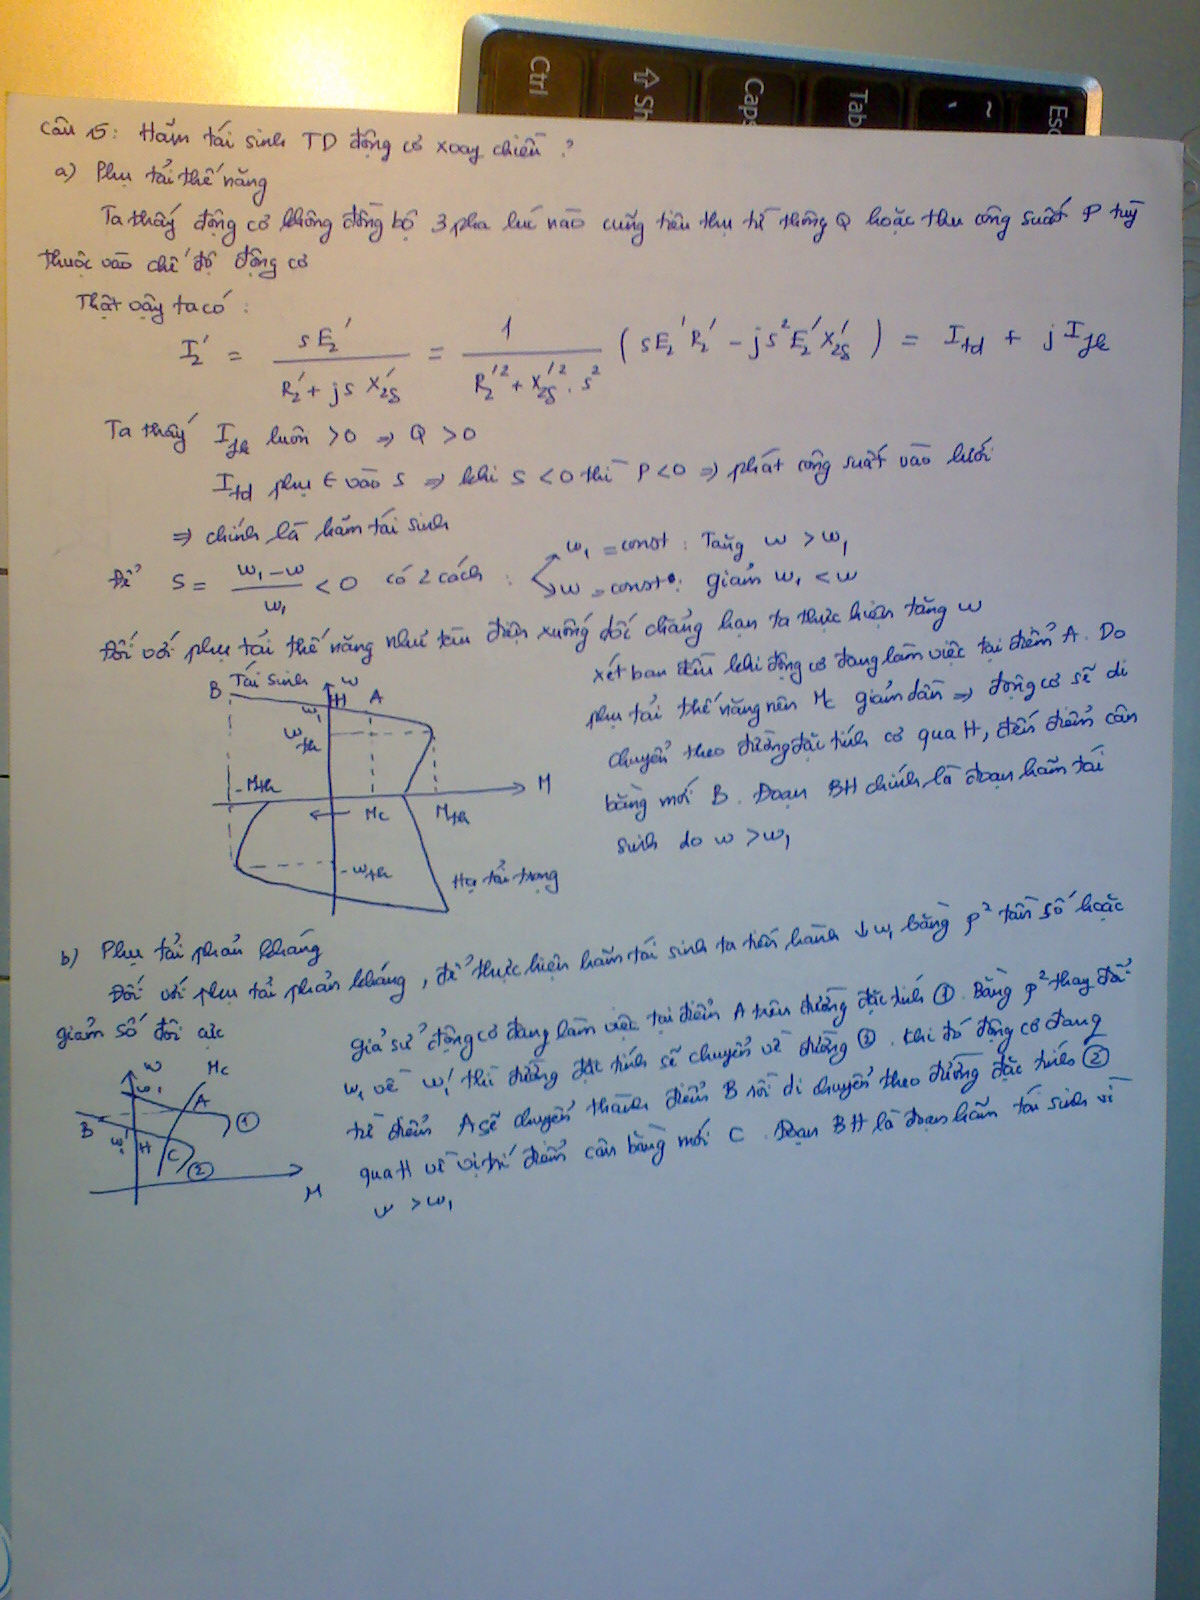 Esc
~
`
Tab
Caps
⇧ Sh
Ctrl
Câu 15: Hãm tái sinh TD động cơ xoay chiều ?
a) Phụ tải thế năng
Ta thấy động cơ không đồng bộ 3 pha lúc nào cũng tiêu thụ từ thông Q hoặc thu công suất P tuỳ
thuộc vào chế độ động cơ
Thật vậy ta có :
I2' = sE2' / (R2' + js X2δ') = 1 / (R2'² + X2δ'² . s²) (sE2'R2' - js²E2'X2δ') = Itd + jIfk
Ta thấy Ifk luôn >0 => Q >0
Itd phụ ∈ vào s => khi s <0 thì P<0 => phát công suất vào lưới
=> chính là hãm tái sinh
Để S = (ω1 - ω) / ω1 < 0 có 2 cách :
ω1 = const : Tăng ω > ω1
ω = const : giảm ω1 < ω
Đối với phụ tải thế năng như tàu điện xuống dốc chẳng hạn ta thực hiện tăng ω
B Tái sinh ω H A
ω1
ωth
-Mth Mc Mth M
-ωth
Hạ tải trọng
xét ban đầu khi động cơ đang làm việc tại điểm A. Do
phụ tải thế năng nên Mc giảm dần => động cơ sẽ di
chuyển theo đường đặc tính cơ qua H, đến điểm cân
bằng mới B. Đoạn BH chính là đoạn hãm tái
sinh do ω > ω1
b) Phụ tải phản kháng
Đối với phụ tải phản kháng, để thực hiện hãm tái sinh ta tiến hành ↓ω1 bằng p² tần số hoặc
giảm số đôi cực
ω Mc
ω1 A ①
B ω1' H C ②
M
Giả sử động cơ đang làm việc tại điểm A trên đường đặc tính ①. Bằng p² thay đổi
ω1 về ω1' thì đường đặc tính sẽ chuyển về đường ②. Khi đó động cơ đang
từ điểm A sẽ chuyển thành điểm B rồi di chuyển theo đường đặc tính ②
qua H về vị trí điểm cân bằng mới C. Đoạn BH là đoạn hãm tái sinh vì
ω > ω1